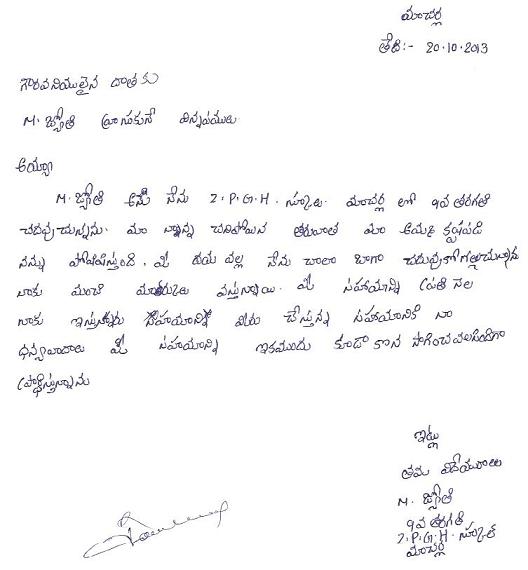 మాచర్ల
తేది:- 20.10.2013
గౌరవనియులైన దాతకు
M. జ్యోతి వ్రాసుకునే విన్నపములు
అయ్యా
M. జ్యోతి అనే నేను Z.P.G.H. స్కూలు మాచర్ల లో 9వ తరగతి
చదువుచున్నను. మా నాన్న చనిపోయిన తరువాత మా అమ్మ కష్టపడి
నన్ను పోషిస్తుంది. మీ దయ వల్ల నేను చాలా బాగా చదువుకోగల్గుచున్నాను
నాకు మంచి మార్కులు వస్తున్నాయి. మీ సహాయాన్ని ప్రతి నెల
నాకు ఇస్తున్నారు మీరు చేస్తున్న సహాయానికి నా
ధన్యవాదాలు మీ సహాయాన్ని ఇకముందు కూడా కొన సాగించవలసిందిగా
ప్రార్థిస్తున్నాను
ఇట్లు
తమ విదేయురాలు
M. జ్యోతి
9వ తరగతి
Z.P.G.H. స్కూల్
మాచర్ల